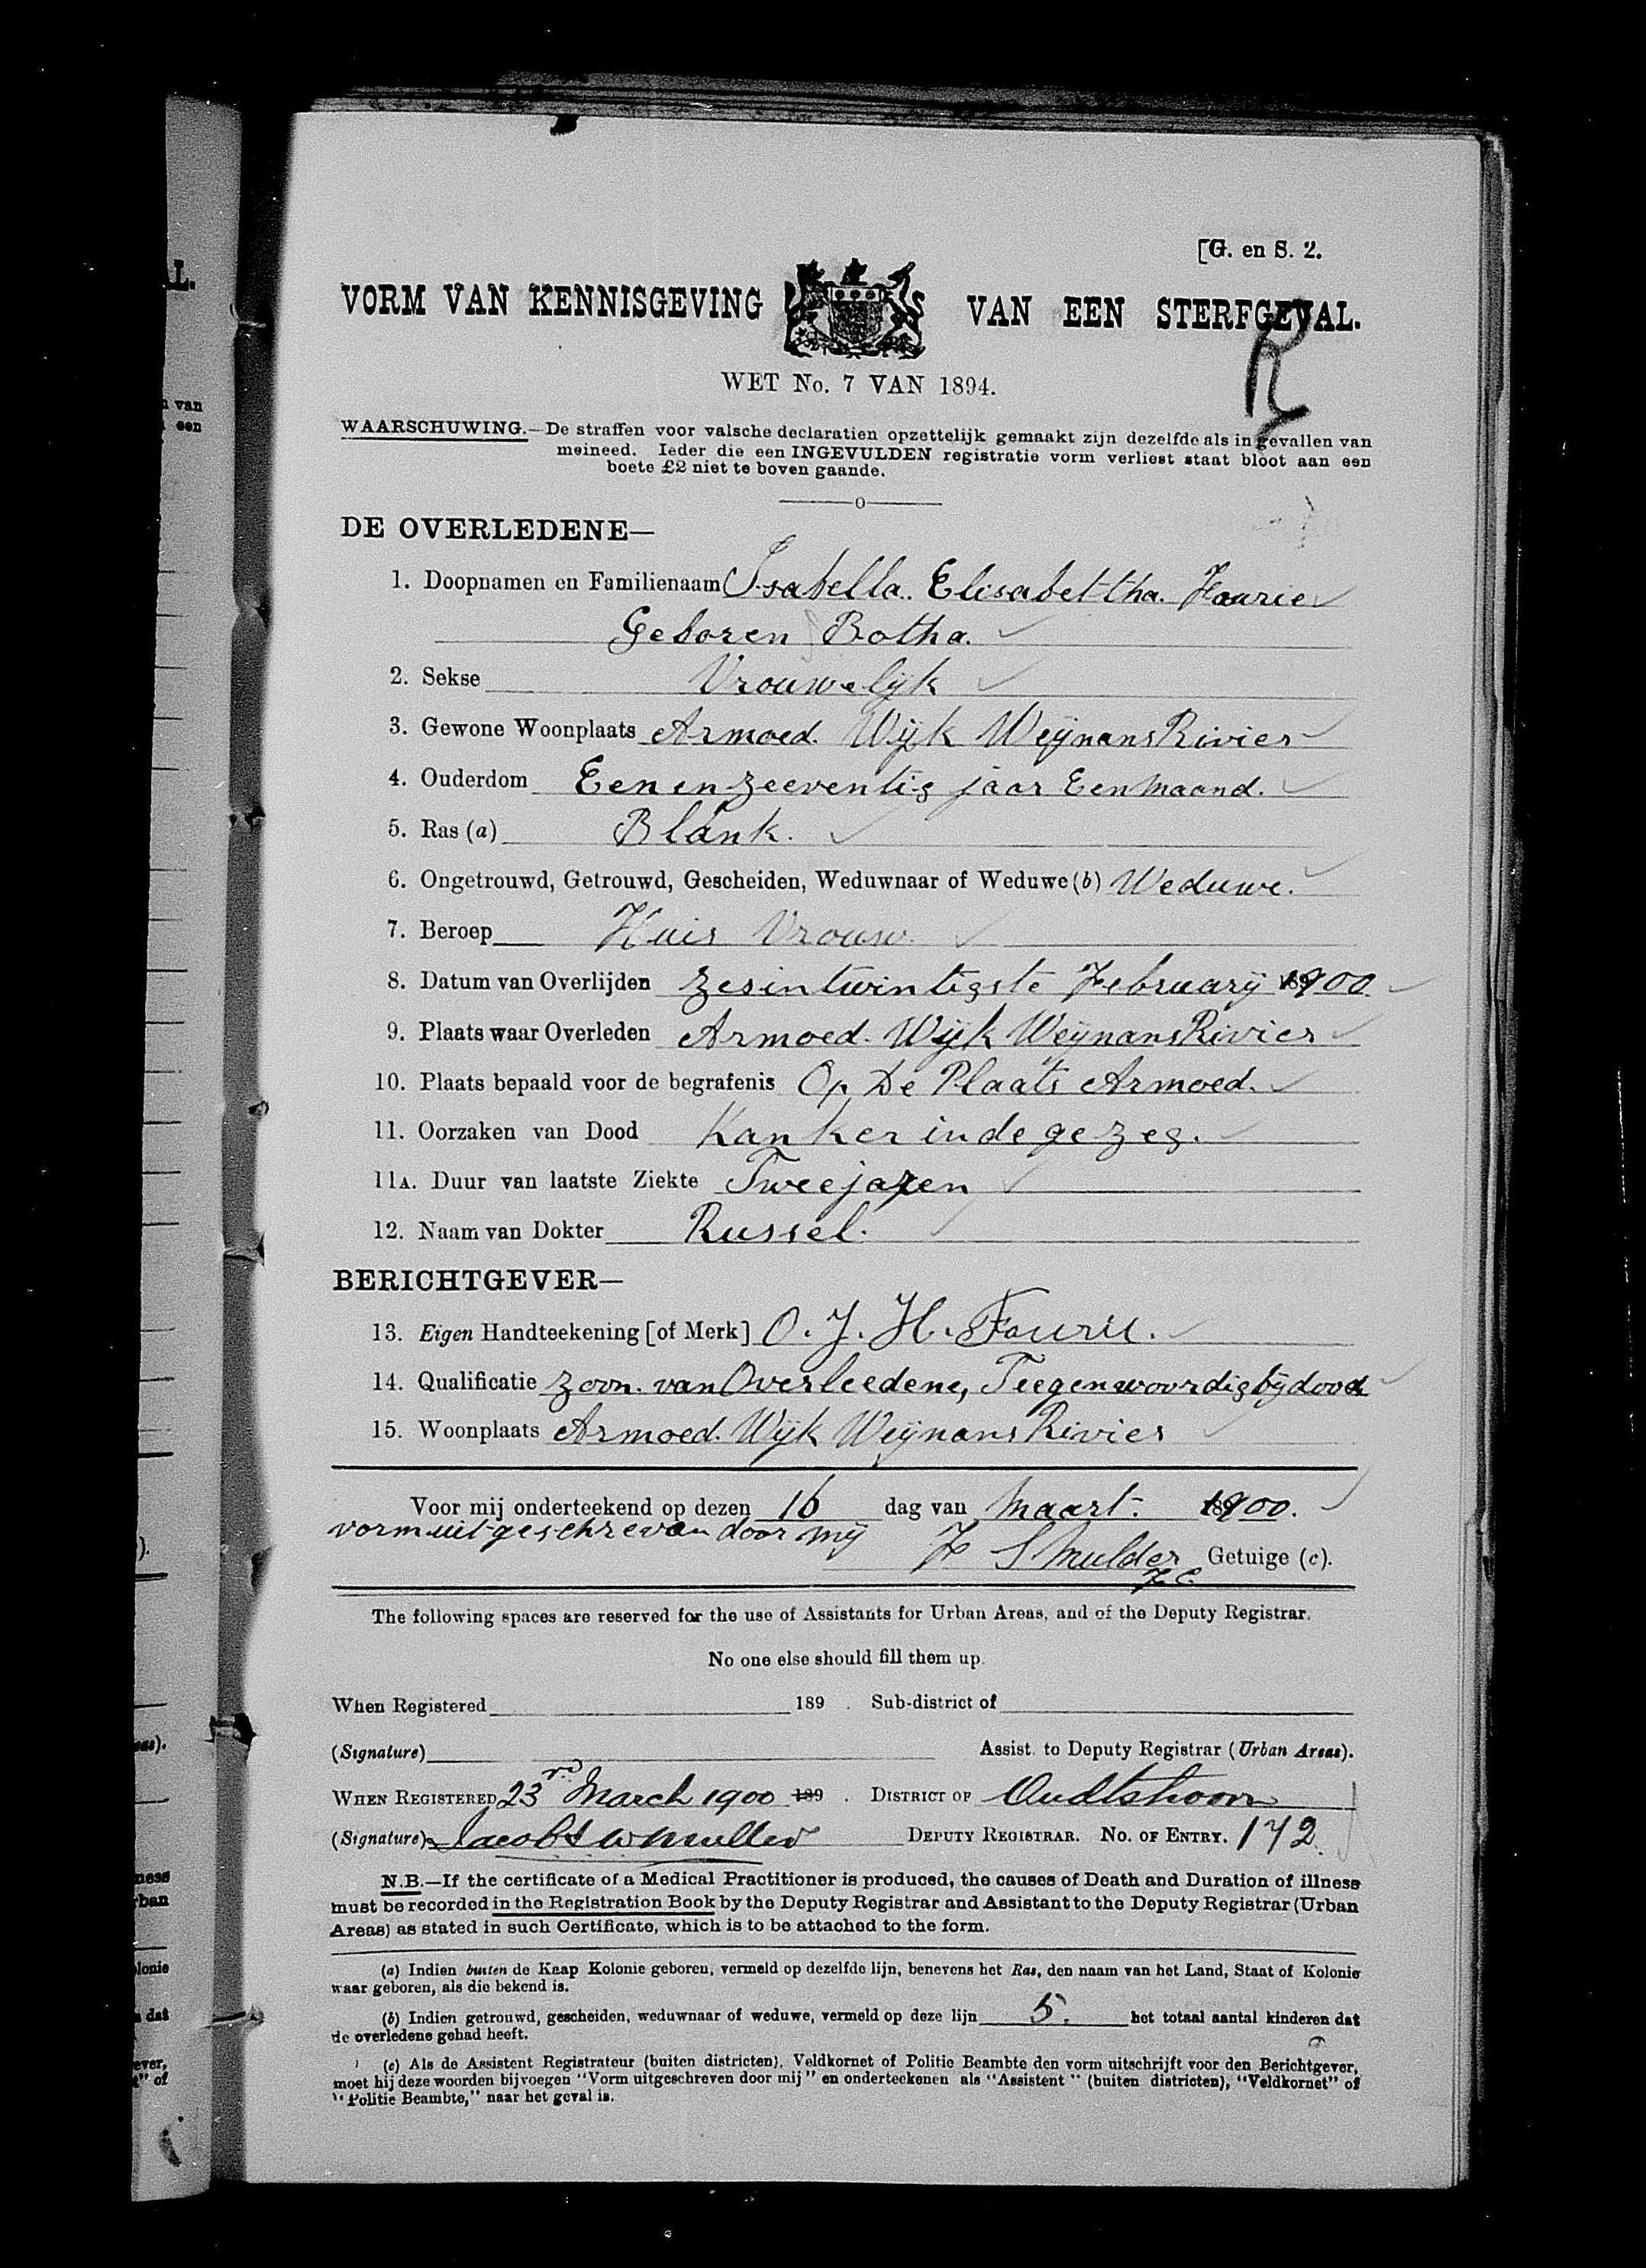 [G. en S. 2.
VORM VAN KENNISGEVING VAN EEN STERFGEVAL.
R
WET No. 7 VAN 1894.
WAARSCHUWING.—De straffen voor valsche declaratien opzettelijk gemaakt zijn dezelfde als in gevallen van
meineed. Ieder die een INGEVULDEN registratie vorm verliest staat bloot aan een
boete £2 niet te boven gaande.
DE OVERLEDENE—
1. Doopnamen en Familienaam Isabella. Elisabettha. Fourie
Geboren Botha.
2. Sekse Vrouwelijk
3. Gewone Woonplaats Armoed. Wijk WeijnansRivier
4. Ouderdom Een en zeeventig jaar Een maand.
5. Ras (a) Blank.
6. Ongetrouwd, Getrouwd, Gescheiden, Weduwnaar of Weduwe (b) Weduwe.
7. Beroep Huis Vrouw.
8. Datum van Overlijden Zesintwintigste Februarij 1900.
9. Plaats waar Overleden Armoed. Wijk WeijnansRivier
10. Plaats bepaald voor de begrafenis Op De Plaats Armoed.
11. Oorzaken van Dood Kanker in de gezeg.
11A. Duur van laatste Ziekte Twee jaren
12. Naam van Dokter Russel.
BERICHTGEVER—
13. Eigen Handteekening [of Merk] O. J. H. Fourie.
14. Qualificatie Zoon. van Overleedene, Teegenwoordig bij dood
15. Woonplaats Armoed. Wijk Weijnans Rivier
Voor mij onderteekend op dezen 16 dag van Maart. 1900.
vorm uitgeschrevan door mij
F S Mulder Getuige (c).
F.C.
The following spaces are reserved for the use of Assistants for Urban Areas, and of the Deputy Registrar.
No one else should fill them up.
When Registered 189 . Sub-district of
(Signature) Assist. to Deputy Registrar (Urban Areas).
WHEN REGISTERED 23rd March 1900 189 . DISTRICT OF Oudtshoorn
(Signature) Jacobs W Muller DEPUTY REGISTRAR. NO. OF ENTRY. 172
N.B.—If the certificate of a Medical Practitioner is produced, the causes of Death and Duration of illness
must be recorded in the Registration Book by the Deputy Registrar and Assistant to the Deputy Registrar (Urban
Areas) as stated in such Certificate, which is to be attached to the form.
(a) Indien buiten de Kaap Kolonie geboren, vermeld op dezelfde lijn, benevens het Ras, den naam van het Land, Staat of Kolonie
waar geboren, als die bekend is.
(b) Indien getrouwd, gescheiden, weduwnaar of weduwe, vermeld op deze lijn 5. het totaal aantal kinderen dat
de overledene gehad heeft.
(c) Als de Assistent Registrateur (buiten districten), Veldkornet of Politie Beambte den vorm uitschrijft voor den Berichtgever,
moet hij deze woorden bijvoegen "Vorm uitgeschreven door mij" en onderteekenen als "Assistent" (buiten districten), "Veldkornet" of
"Politie Beambte," naar het geval is.